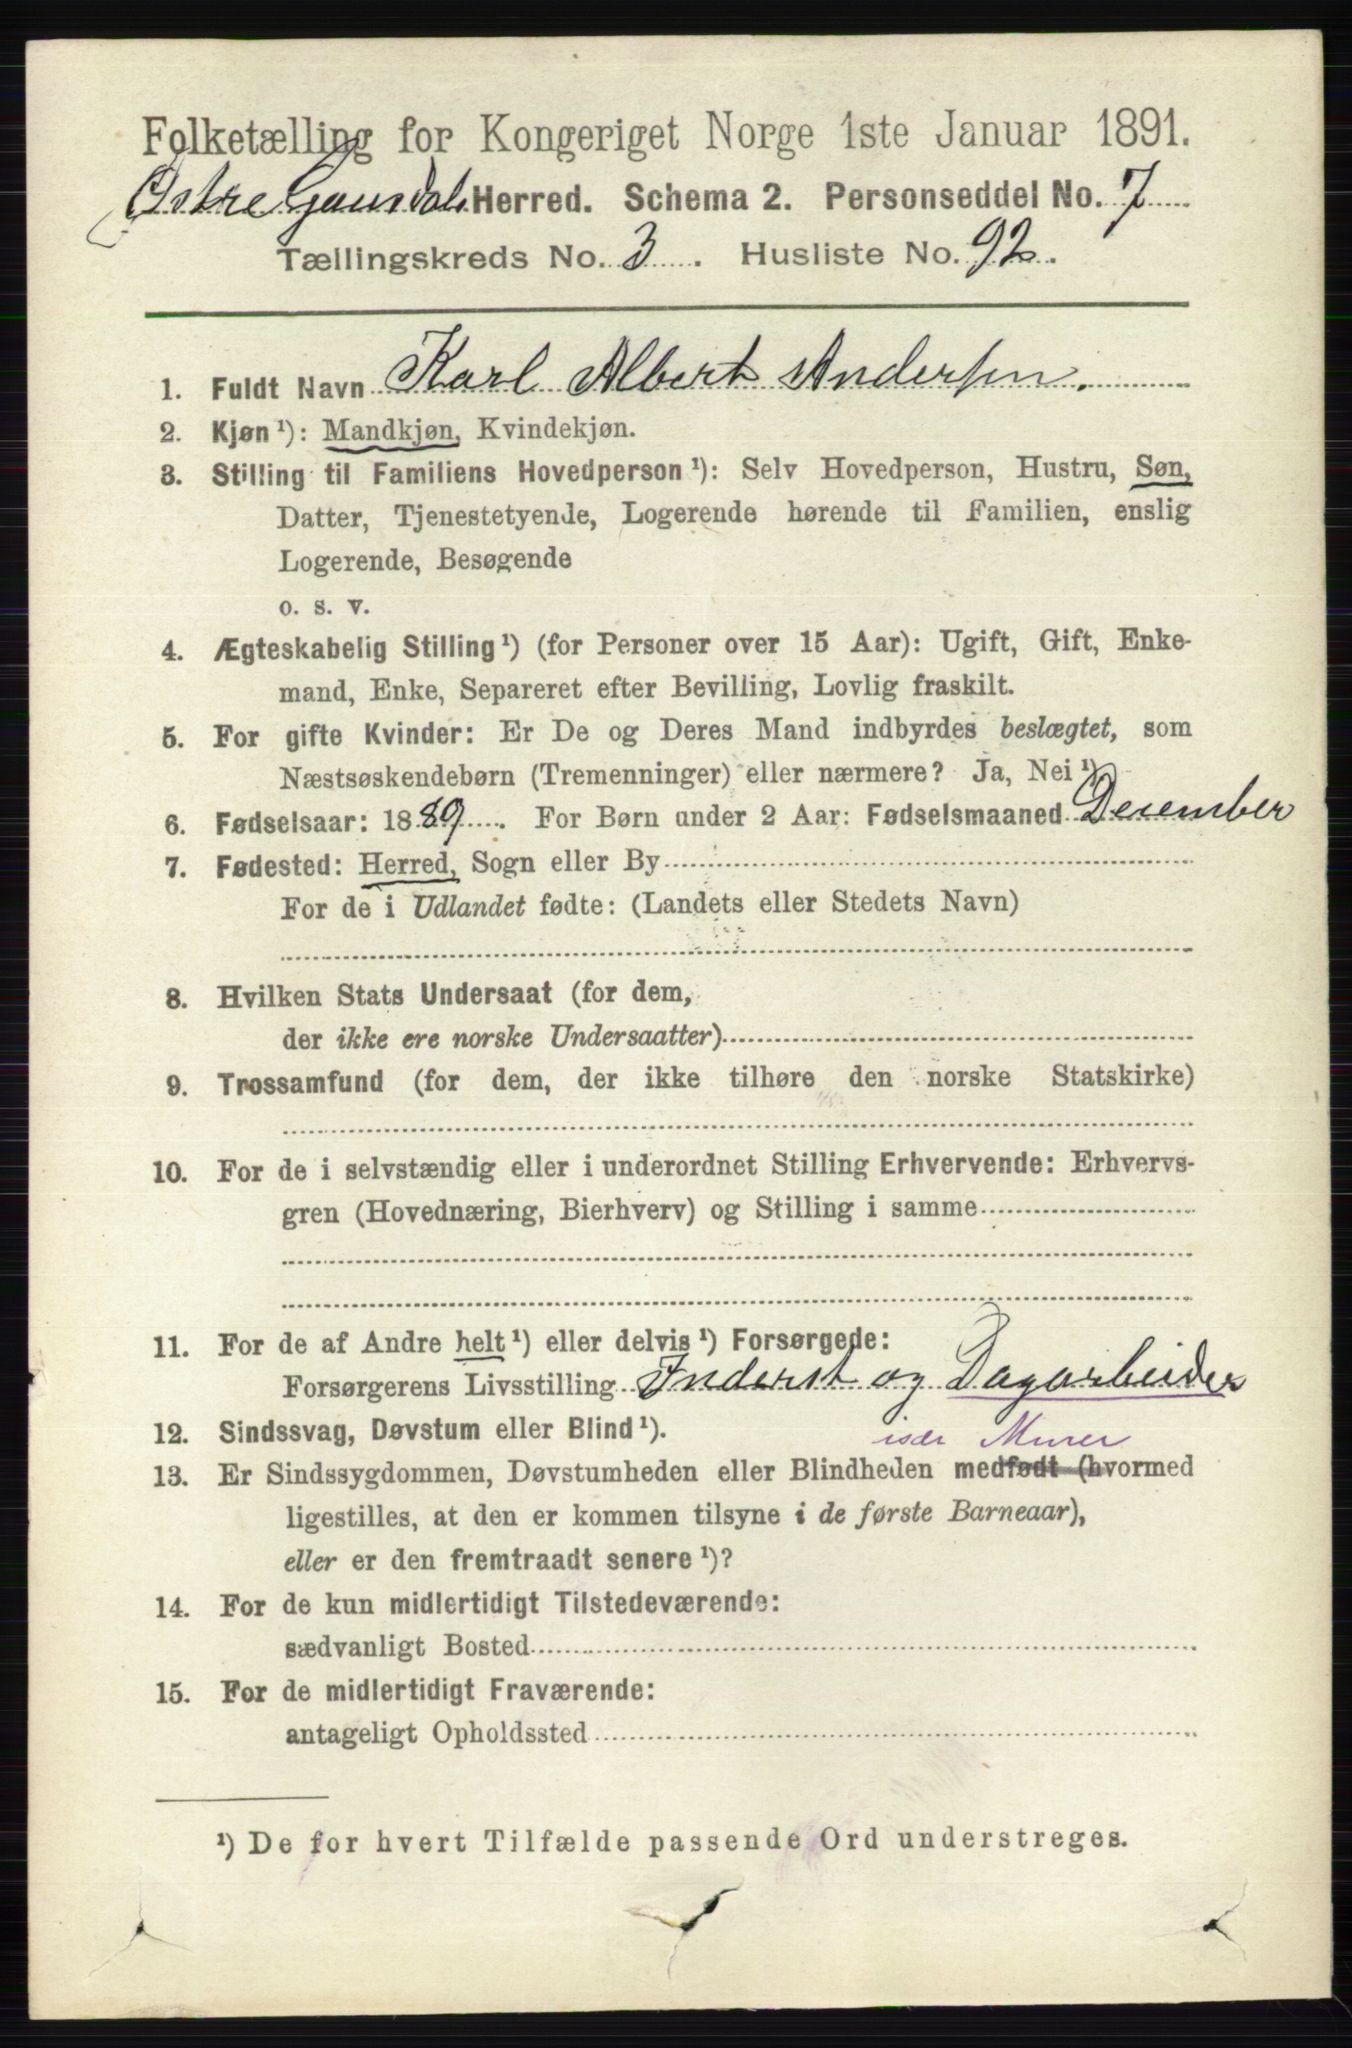 Folketælling for Kongeriget Norge 1ste Januar 1891.
Østre Gausdal Herred. Schema 2. Personseddel No. 7
Tællingskreds No. 3. Husliste No. 92.
1. Fuldt Navn Karl Albert Andersen.
2. Kjøn¹): Mandkjøn, Kvindekjøn.
3. Stilling til Familiens Hovedperson¹): Selv Hovedperson, Hustru, Søn,
Datter, Tjenestetyende, Logerende hørende til Familien, enslig
Logerende, Besøgende
o. s. v.
4. Ægteskabelig Stilling¹) (for Personer over 15 Aar): Ugift, Gift, Enke-
mand, Enke, Separeret efter Bevilling, Lovlig fraskilt.
5. For gifte Kvinder: Er De og Deres Mand indbyrdes beslægtet, som
Næstsøskendebørn (Tremenninger) eller nærmere? Ja, Nei¹)
6. Fødselsaar: 1889. For Børn under 2 Aar: Fødselsmaaned December
7. Fødested: Herred, Sogn eller By
For de i Udlandet fødte: (Landets eller Stedets Navn)
8. Hvilken Stats Undersaat (for dem,
der ikke ere norske Undersaatter)
9. Trossamfund (for dem, der ikke tilhøre den norske Statskirke)
10. For de i selvstændig eller i underordnet Stilling Erhvervende: Erhvervs-
gren (Hovednæring, Bierhverv) og Stilling i samme
11. For de af Andre helt¹) eller delvis¹) Forsørgede:
Forsørgerens Livsstilling Inderst og Dagarbeider
12. Sindssvag, Døvstum eller Blind¹). især Murer
13. Er Sindssygdommen, Døvstumheden eller Blindheden medfødt (hvormed
ligestilles, at den er kommen tilsyne i de første Barneaar),
eller er den fremtraadt senere¹)?
14. For de kun midlertidigt Tilstedeværende:
sædvanligt Bosted
15. For de midlertidigt Fraværende:
antageligt Opholdssted
¹) De for hvert Tilfælde passende Ord understreges.